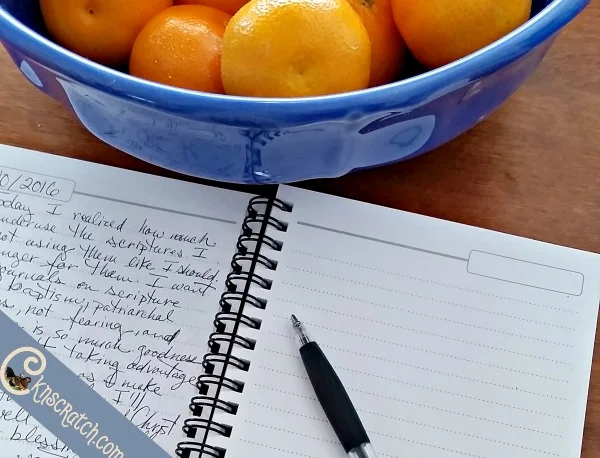 0/2016
oday I realized how much
underuse the scriptures I
not using them like I should
nger for them. I want
ournals on scripture
baptism, patriarchal
s, not fearing, and
is so much goodness
taking advantage
as I make
I!!!
Christ
well
blessin
Cknscratch.com